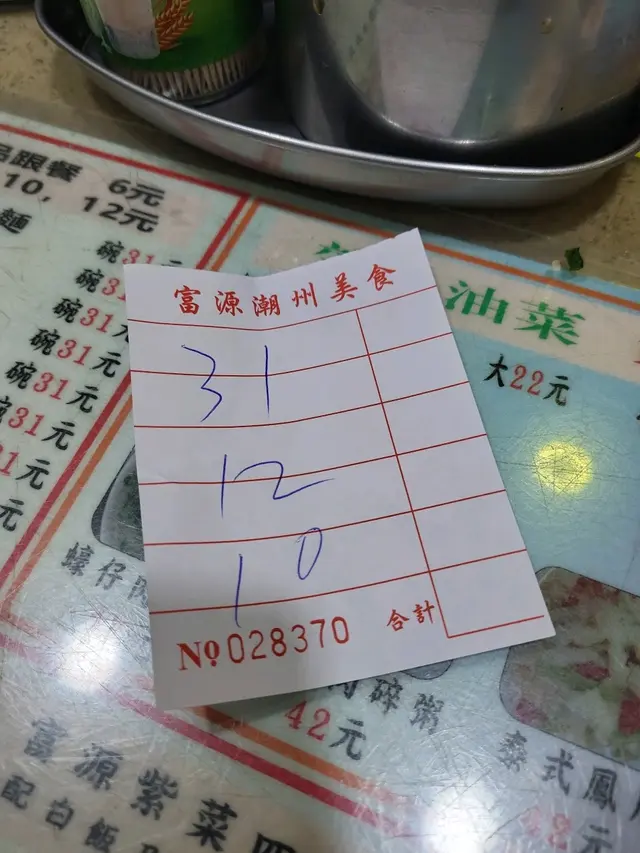 品跟餐 6元
10, 12元
麵
碗31
碗31
碗31元
碗31元
碗31元
31元
31元
元
油菜
大22元
富源潮州美食
31
12
10
合計
Nº 028370
蠔仔
碎粥
42元
泰式鳳
富源紫菜四
配白飯